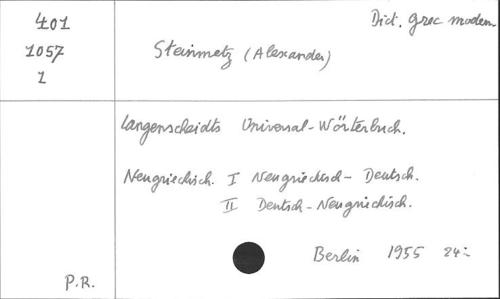 401
1057
1
Dict. Grec modern
Steinmetz (Alexander)
Langenscheidts Universal-Wörterbuch.
Neugriechisch. I Neugriechisch - Deutsch.
II Deutsch - Neugriechisch.
Berlin 1955 24:
P.R.